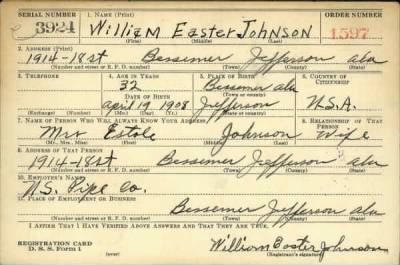 SERIAL NUMBER 1. NAME (Print) ORDER NUMBER
3924 William Easter Johnson 1597
(First) (Middle) (Last)
2. ADDRESS (Print)
1914-18st Bessemer Jefferson ala
(Number and street or R. F. D. number) (Town) (County) (State)
3. TELEPHONE 4. AGE IN YEARS 5. PLACE OF BIRTH 6. COUNTRY OF CITIZENSHIP
32 Bessemer ala
DATE OF BIRTH (Town or county)
april 19 1908 Jefferson U.S.A.
(Exchange) (Number) (Mo.) (Day) (Yr.) (State or country)
7. NAME OF PERSON WHO WILL ALWAYS KNOW YOUR ADDRESS 8. RELATIONSHIP OF THAT PERSON
Mrs Estole Johnson Wife
(Mr., Mrs., Miss) (First) (Middle) (Last)
9. ADDRESS OF THAT PERSON
1914-18st Bessemer Jefferson ala
(Number and street or R. F. D. number) (Town) (County) (State)
10. EMPLOYER'S NAME
U.S. Pipe Co.
11. PLACE OF EMPLOYMENT OR BUSINESS
Bessemer Jefferson ala
(Number and street or R. F. D. number) (Town) (County) (State)
I AFFIRM THAT I HAVE VERIFIED ABOVE ANSWERS AND THAT THEY ARE TRUE.
REGISTRATION CARD
D. S. S. Form 1 William Easter Johnson
(Registrant's signature)